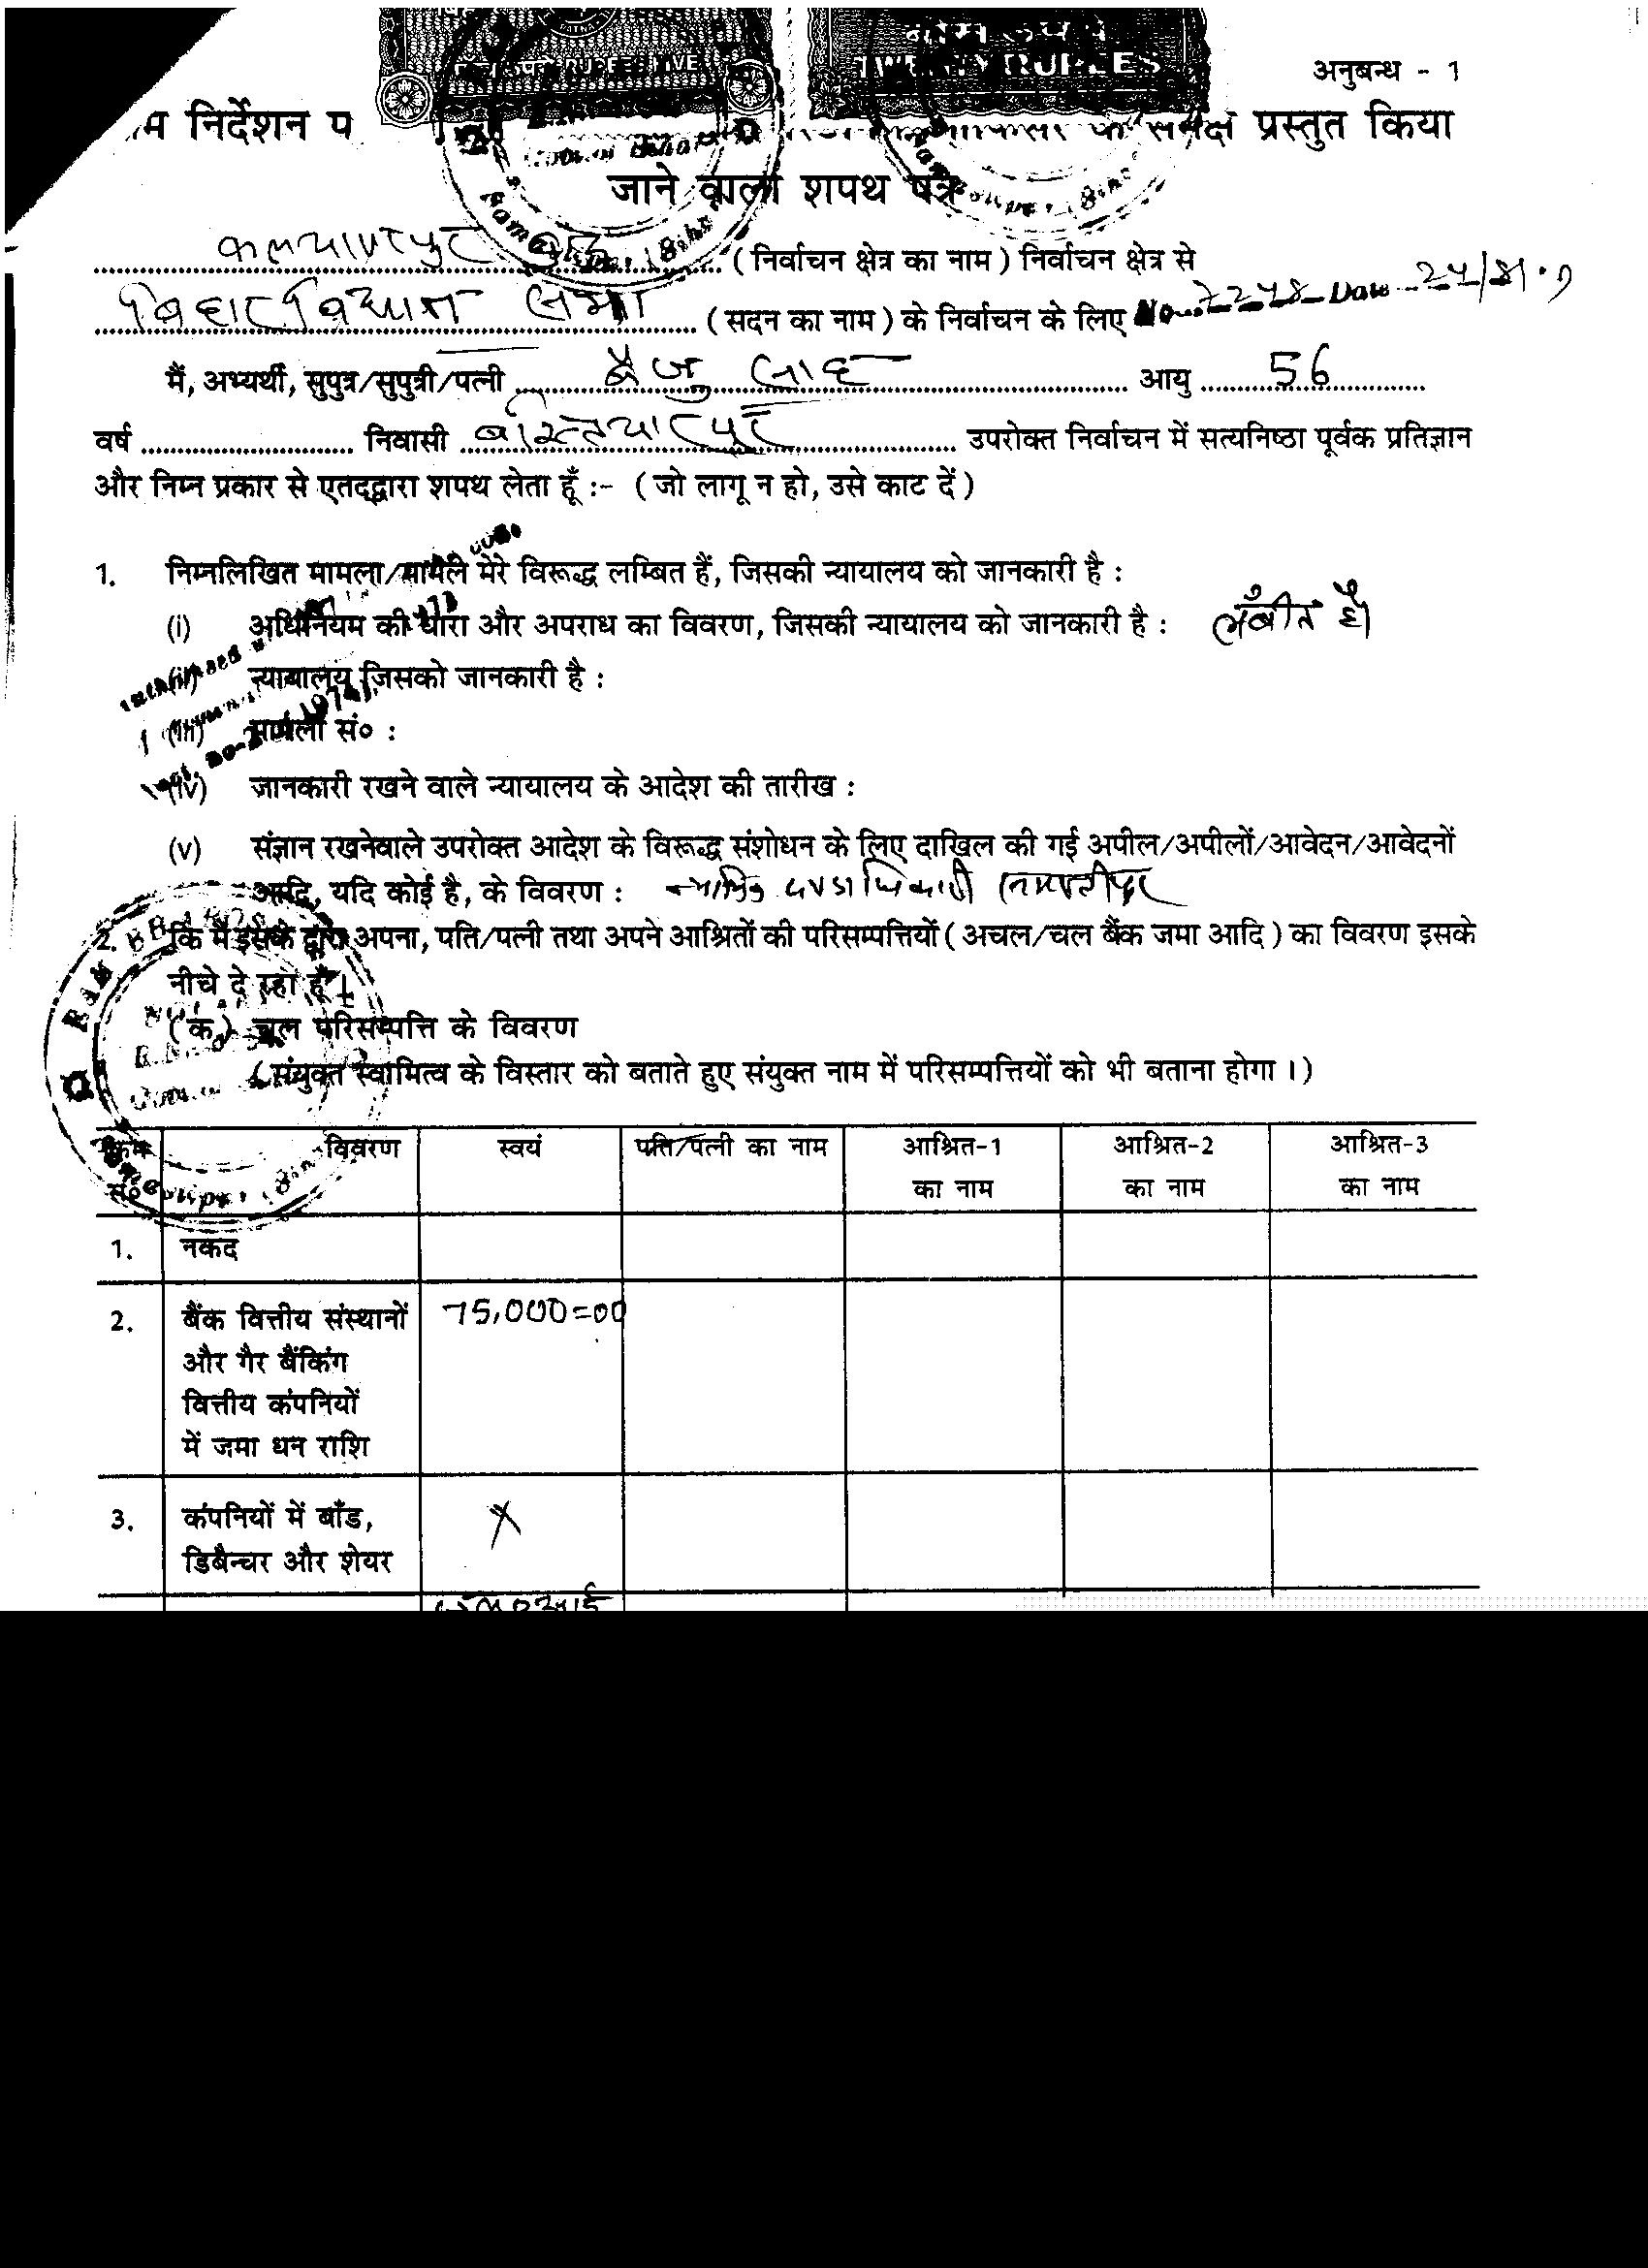 RUPEES FIVE
TWENTY RUPEES
अनुबन्ध - 1
निर्देशन समक्ष प्रस्तुत किया
जाने वाला शपथ पत्र
कलयाणपुर (निर्वाचन क्षेत्र का नाम) निर्वाचन क्षेत्र से
बिहार विधान सभा (सदन का नाम) के निर्वाचन के लिए No 7278 Date
मैं, अभ्यर्थी, सुपुत्र/सुपुत्री/पत्नी बैजु साह आयु 56
वर्ष निवासी उपरोक्त निर्वाचन में सत्यनिष्ठा पूर्वक प्रतिज्ञान
और निम्न प्रकार से एतदद्वारा शपथ लेता हूँ :- (जो लागू न हो, उसे काट दें)
1. निम्नलिखित मामला/मामले मेरे विरूद्ध लम्बित हैं, जिसकी न्यायालय को जानकारी है :
(i) अधिनियम की धारा और अपराध का विवरण, जिसकी न्यायालय को जानकारी है : लंबीत है
(ii) न्यायालय जिसको जानकारी है :
(iii) मामला सं० :
(iv) जानकारी रखने वाले न्यायालय के आदेश की तारीख :
(v) संज्ञान रखनेवाले उपरोक्त आदेश के विरूद्ध संशोधन के लिए दाखिल की गई अपील/अपीलों/आवेदन/आवेदनों
आदि, यदि कोई है, के विवरण : दण्डाधिकारी समस्तीपुर
2. कि मैं इसके द्वारा अपना, पति/पत्नी तथा अपने आश्रितों की परिसम्पत्तियों (अचल/चल बैंक जमा आदि) का विवरण इसके
नीचे दे रहा हूँ।
(क) चल परिसम्पत्ति के विवरण
(संयुक्त स्वामित्व के विस्तार को बताते हुए संयुक्त नाम में परिसम्पत्तियों को भी बताना होगा।)
क्रम विवरण स्वयं पति/पत्नी का नाम आश्रित-1 आश्रित-2 आश्रित-3
सं० का नाम का नाम का नाम
1. नकद
2. बैंक वित्तीय संस्थानों 75,000=00
और गैर बैंकिंग
वित्तीय कंपनियों
में जमा धन राशि
3. कंपनियों में बाँड, X
डिबैन्चर और शेयर